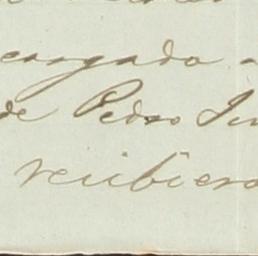 cargado a
de Pedro
recibiero